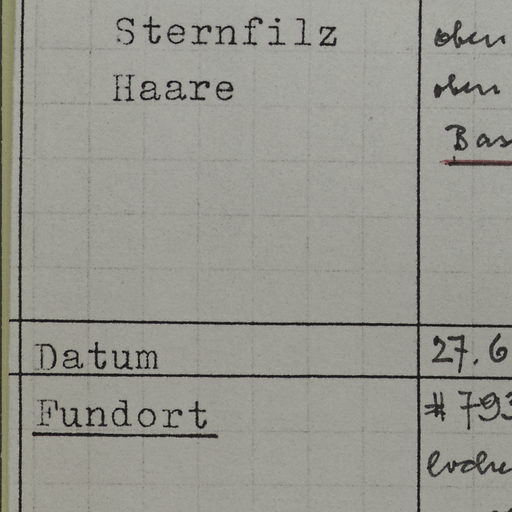 Sternfilz oben
Haare oben
Bas
Datum 27.6
Fundort # 793